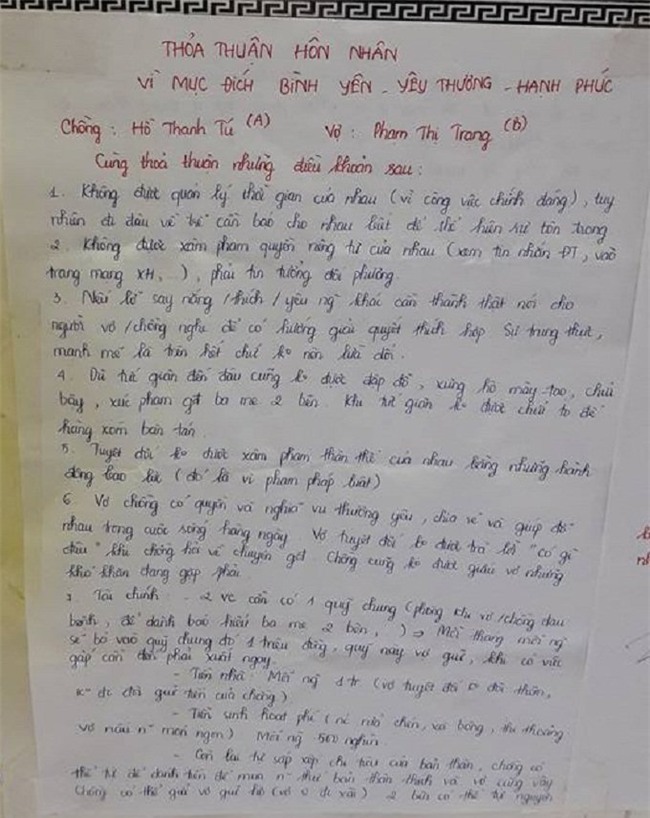 THỎA THUẬN HÔN NHÂN
VÌ MỤC ĐÍCH BÌNH YÊN - YÊU THƯƠNG - HẠNH PHÚC
Chồng : Hồ Thanh Tú (A) Vợ : Phạm Thị Trang (B)
Cùng thoả thuận những điều khoản sau :
1. Không được quản lý thời gian của nhau (vì công việc chính đáng), tuy
nhiên đi đâu về trễ cần báo cho nhau biết để thể hiện sự tôn trọng
2. Không được xâm phạm quyền riêng tư của nhau (xem tin nhắn ĐT, vào
trang mạng XH, ...), phải tin tưởng đối phương.
3. Nếu lỡ say nắng / thích / yêu ng khác cần thành thật nói cho
người vợ / chồng nghe để có hướng giải quyết thích hợp. Sự trung thực,
mạnh mẽ là trên hết chứ ko nên lừa dối.
4. Dù tức giận đến đâu cũng ko được đập đồ, xưng hô mày-tao, chửi
bậy, xúc phạm gđ ba mẹ 2 bên. Khi tức giận ko được chửi to để
hàng xóm bàn tán.
5. Tuyệt đối ko được xâm phạm thân thể của nhau bằng những hành
động bạo lực (đó là vi phạm pháp luật)
6. Vợ chồng có quyền và nghĩa vụ thương yêu, chia sẻ và giúp đỡ
nhau trong cuộc sống hàng ngày. Vợ tuyệt đối ko được trả lời "có gì
đâu" khi chồng hỏi về chuyện gì đó. Chồng cũng ko được giấu vợ những
khó khăn đang gặp phải.
7. Tài chính : - 2 vc cần có 1 quỹ chung (phòng khi vợ/chồng đau
bệnh, để dành báo hiếu ba mẹ 2 bên, ) => Mỗi tháng mỗi ng
sẽ bỏ vào quỹ chung đó 1 triệu đồng, quỹ này vợ giữ, khi có việc
gấp cần đến phải xuất ngay.
- Tiền nhà : Mỗi ng 1tr (vợ tuyệt đối
đã giữ tiền của chồng)
- Tiền sinh hoạt phí ( thi thoảng
vợ nấu món ngon) Mỗi ng 500 nghìn
- Còn lại tự sắp xếp chi tiêu của bản thân, chồng có
thể tự để dành tiền để mua thứ bản thân thích và vợ cũng vậy
Chồng có thể gửi vợ giữ hộ (vợ đi xài) 2 bên có thể tự nguyện